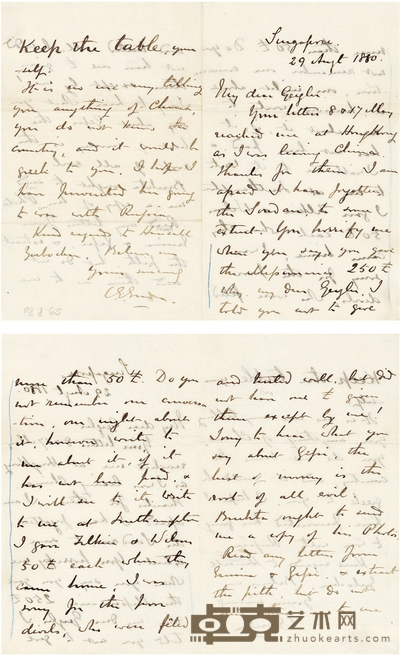 Singapore.
29 Augt 1880.
My dear Geigler
Your letters 8 & 17 May
reached me at Hong Kong
as I was leaving China.
Thanks for them. I am
afraid I have forgotten
the Soudan, to some
extent. You horrify me
when you say you gave
the 250 £
why my dear Geigler I
told you not to give
more than 50 £. Do you
not remember our conversa
tion, one night about
it, however write to
me about it, if it
has not been paid, &
I will see to it, write
to me at Southampton
I gave & Wilson
50 £ each when they
came home, I was
sorry for the poor
devils, who were
and treated well, but did
not have one to give
them except by me!
I am sorry to hear what you
say about Gessi, the
lust of money is the
root of all evil.
ought to send
me a copy of his Photos
Read any letters from
& Gessi, & extract
the pith, but do not
Keep the table, your
self.
It is no use my telling
you anything of China,
you do not know the
country, and it would be
greek to you. I hope I
have prevented her going
to war with Russia.
Kind regards to
Believe me
Yours
C G Gordon
卓克艺术网
zhuokearts.com